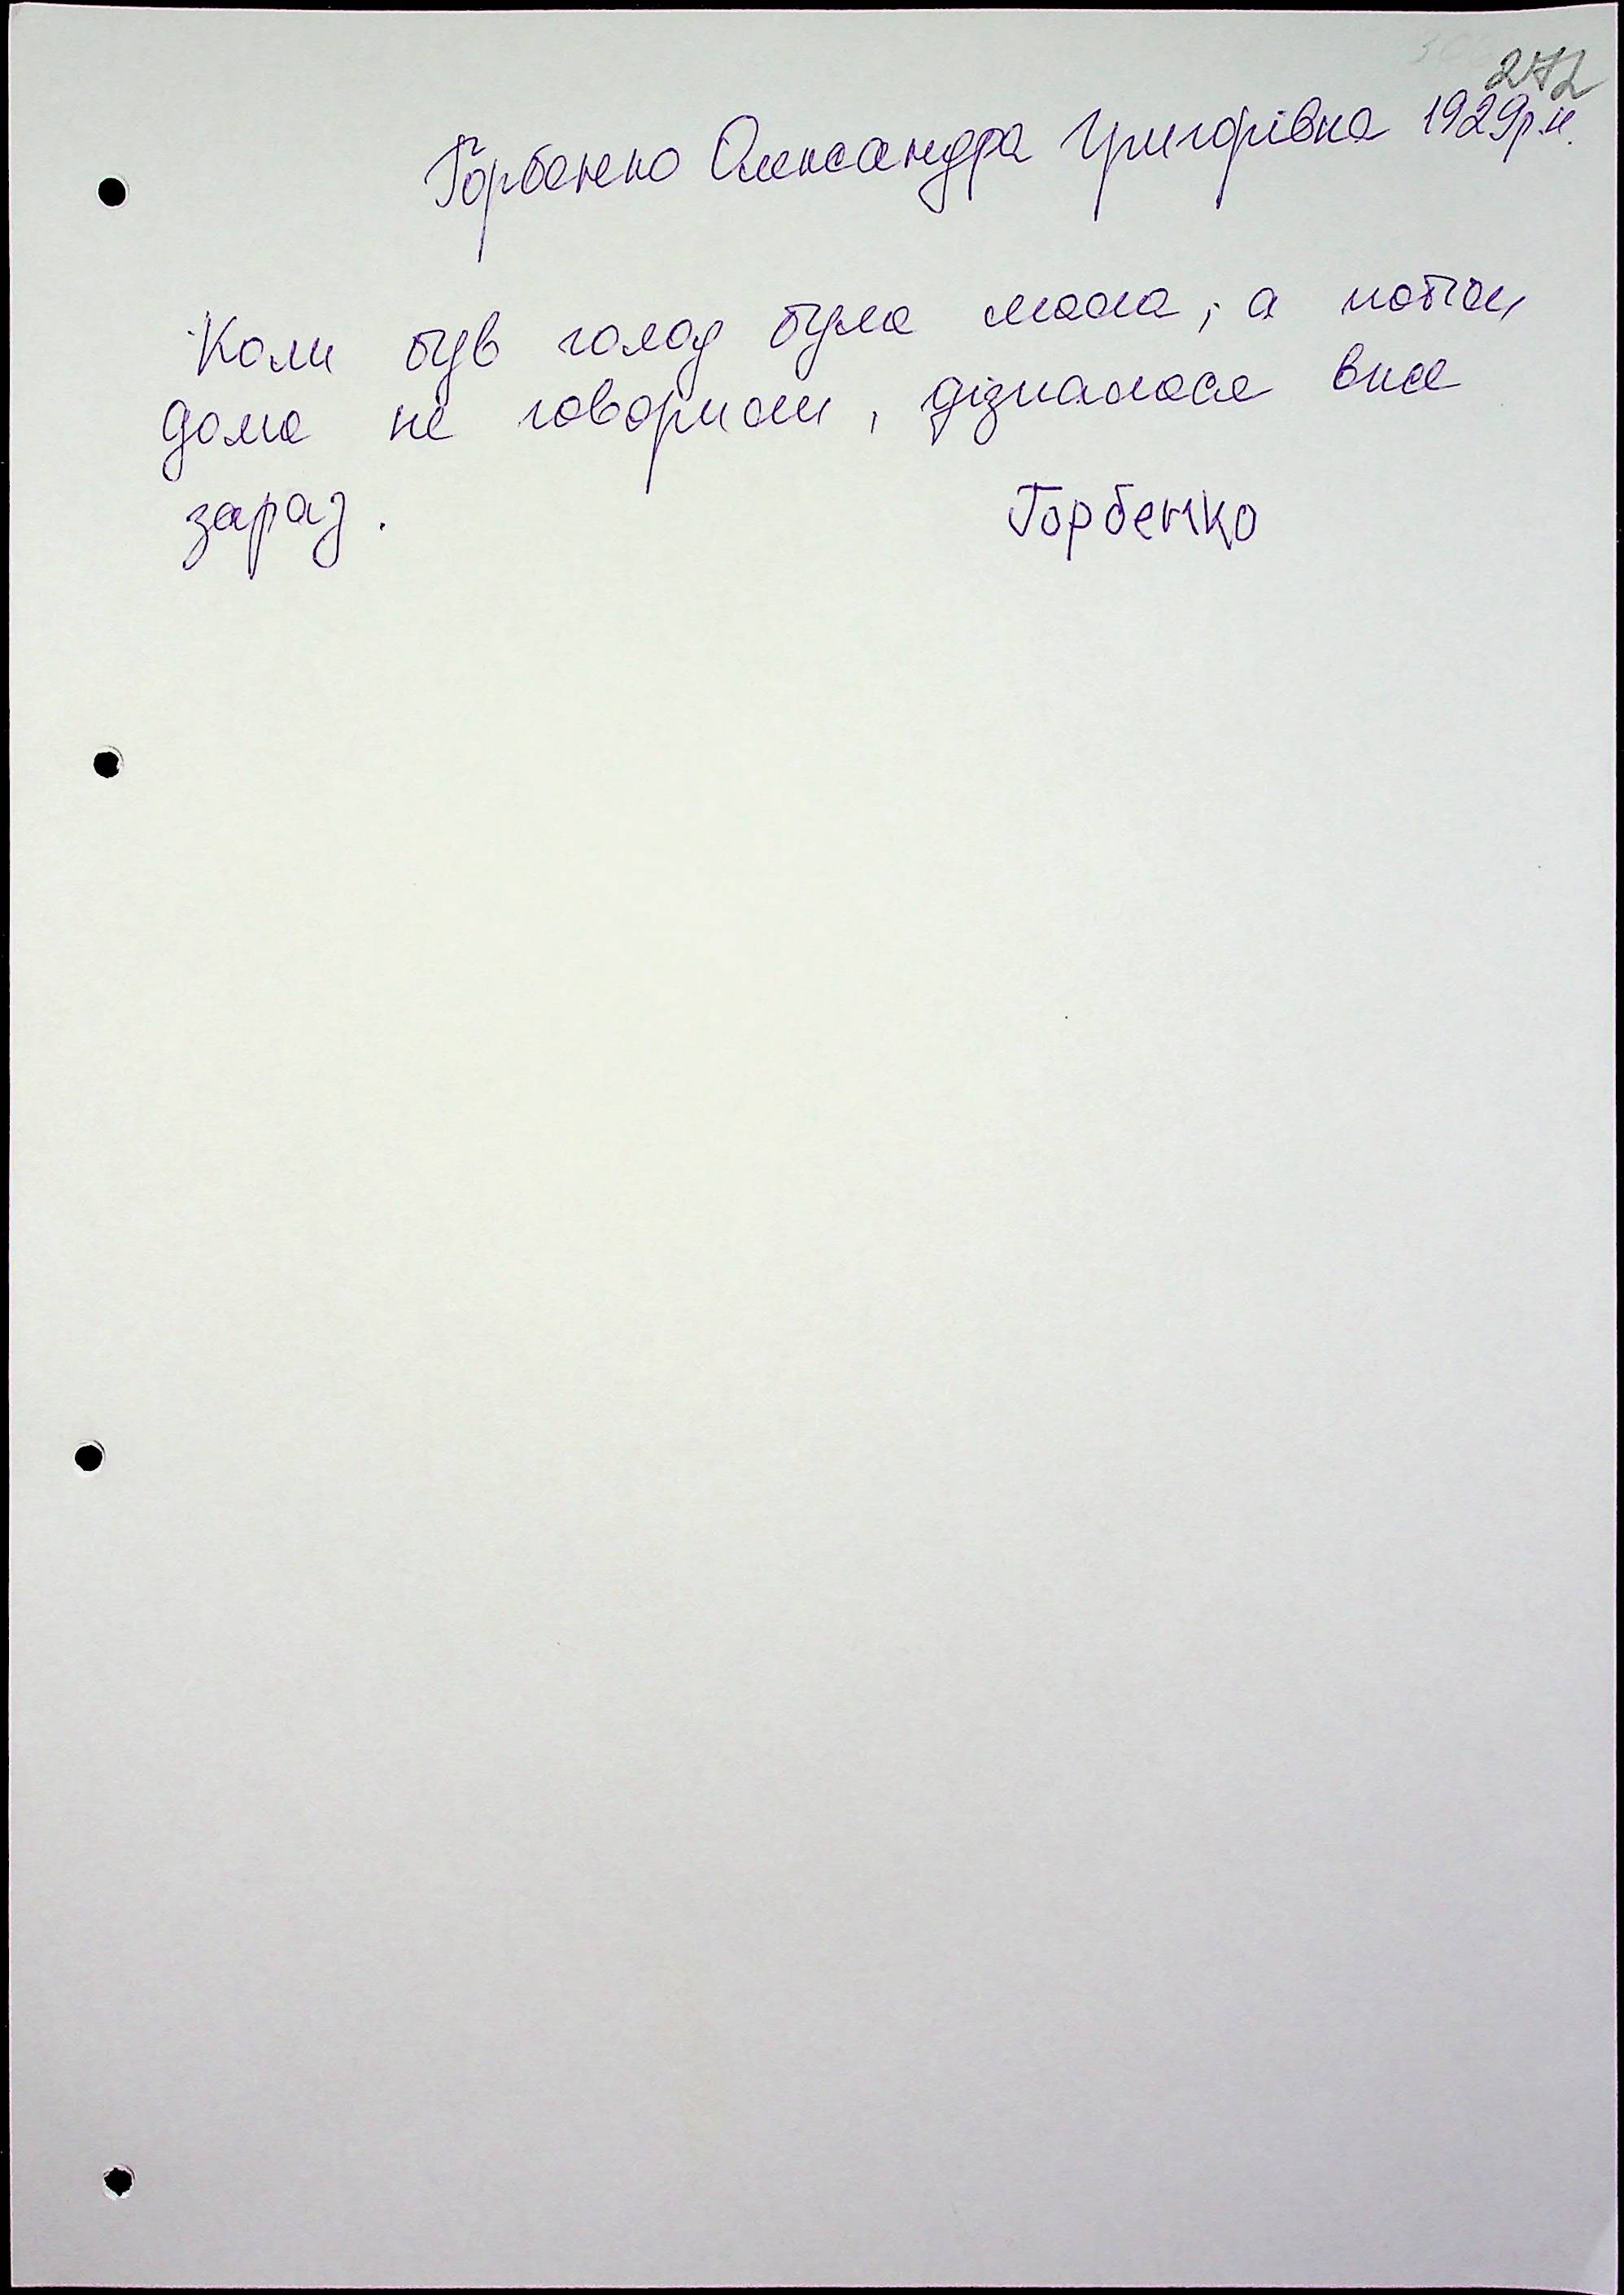 272
Горбенко Олександра Григорівна 1929р.н.
Коли був голод була мала, а потом
дома не говорили, дізналася вже
зараз.
Горбенко